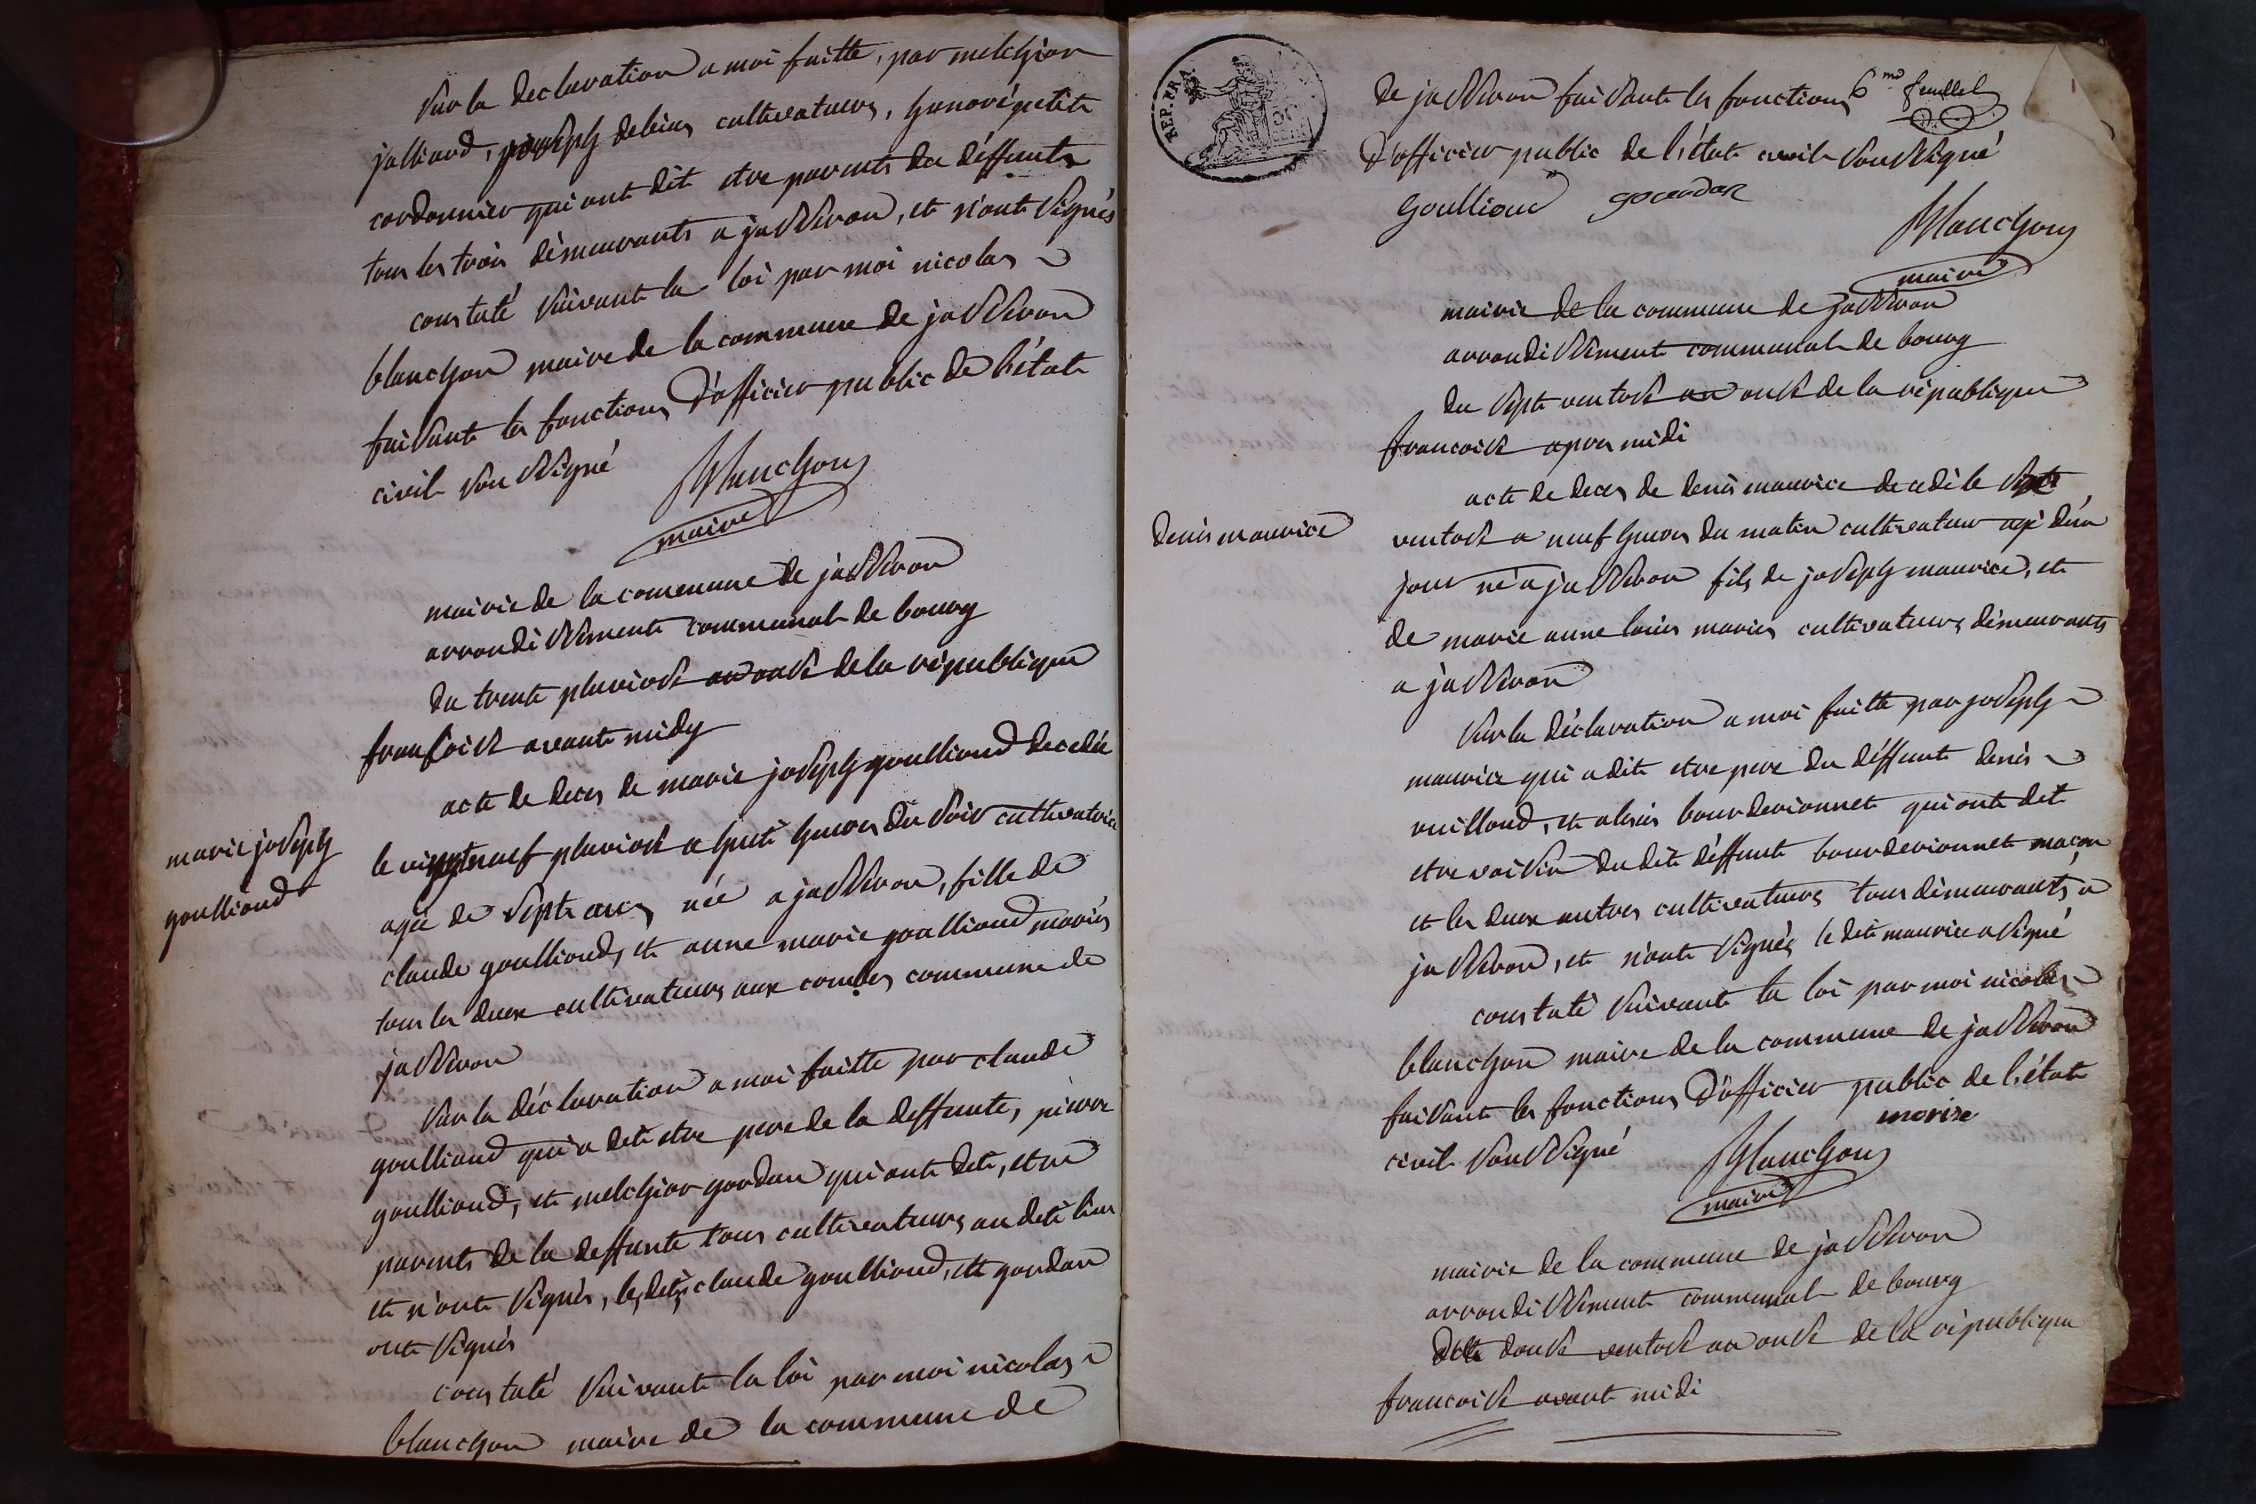 Sur la declaration a moi faitte, par melchior
jolliard, joseph debias cultivateurs, honoré petit
cordonnier qui ont dit etre parents du déffunt
tous les trois démeurants a jasseron, et n'ont signés
constaté suivant la loi par moi nicolas
blanchon maire de la commune de jasseron
faisant les fonctions d'officier public de l'état
civil soussigné
Blanchon
maire
mairie de la commune de jasseron
arrondissement communal de bourg
du trente pluviose an onse de la république
francoise avant midy
marie joseph
goulliond
acte de deces de marie joseph goulliond decedée
le vingtneuf pluviose a huit heures du soir cultivatrice
agée de sept ans, née a jasseron, fille de
claude goulliond, et anne marie goulliond mariés
tous les deux cultivateurs aux combes commune de
jasseron
Sur la déclaration a moi faitte par claude
goulliond qui a dit etre pere de la deffunte, pierre
goulliond, et melchior gordan qui ont dit, etre
parents de la deffunte tous cultivateurs au dit lieu
et n'ont signés, les dits claude goulliond, et gordan
ont signés
constaté suivant la loi par moi nicolas
blanchon maire de la commune de
REP. FRA.
6me feuillet
de jasseron faisant les fonctions
d'officier public de l'état civil soussigné
goulliond gordan
Blanchon
maire
mairie de la commune de jasseron
arrondissement communal de bourg
du sept ventose an onse de la république
francoise apres midi
denis maurice
acte de deces de denis maurice decedé le sept
ventose a neuf heures du matin cultivateur agé d'un
jour né a jasseron fils de joseph maurice, et
de marie anne louis mariés cultivateurs démeurants
a jasseron
Sur la déclaration a moi faitte par joseph
maurice qui a dit etre pere du déffunt denis
vuilloud, et alexis bourdevionnet qui ont dit
etre voisin du dit déffunt bourdevionnet macon
et les deux autres cultivateurs tous démeurants a
jasseron, et n'ont signés le dit maurice a signé
constaté suivant la loi par moi nicolas
blanchon maire de la commune de jasseron
faisant les fonctions d'officier public de l'état
civil soussigné
morise
Blanchon
maire
mairie de la commune de jasseron
arrondissement communal de bourg
douse ventose an onse de la république
francoise avant midi